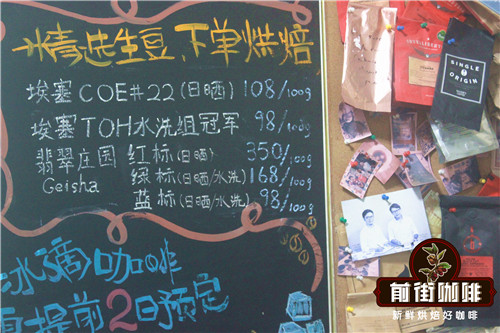 精选生豆,下单烘焙
埃塞COE#22(日晒) 108/100g
埃塞TOH水洗组冠军 98/100g
翡翠庄园 红标(日晒) 350/100g
Geisha 绿标(日晒/水洗) 168/100g
蓝标(日晒/水洗) 98/100g
冰滴咖啡
提前2日预定
SINGLE
ORIGIN
前街咖啡
新鲜烘焙好咖啡